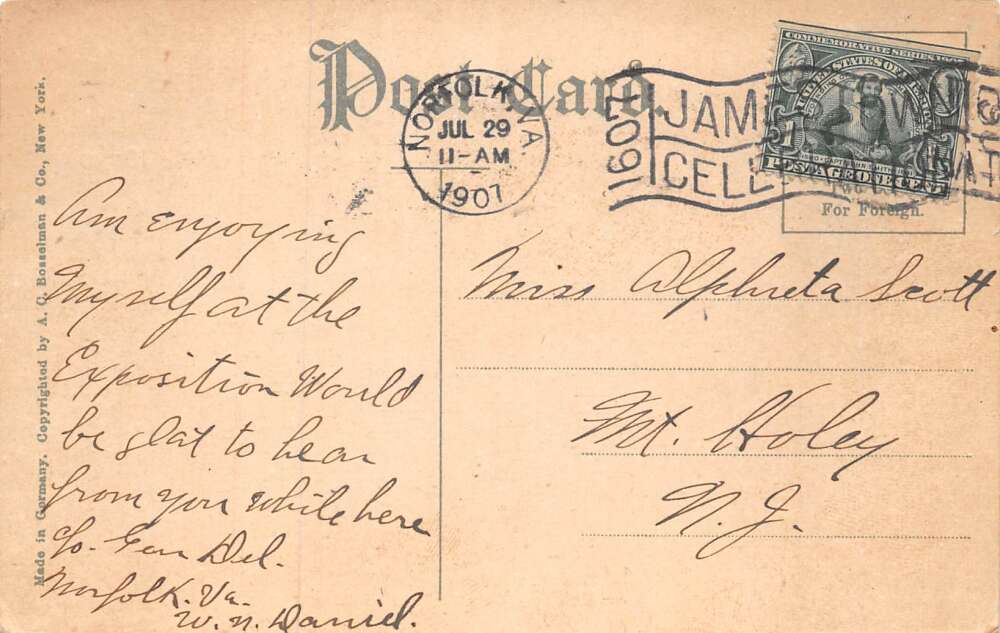 Post Card.
Made in Germany. Copyrighted by A. C. Bosselman & Co., New York.
NORFOLK, VA
JUL 29
11-AM
1907
1607
JAM
CELE
COMMEMORATIVE SERIES 1907
UNITED STATES OF AMERICA
1
POSTAGE ONE CENT
For Foreign.
Am enjoying
Myself at the
Exposition Would
be glat to hear
from you white here
c/o. Gen Del.
Norfolk. Va.
W. N. Daniel.
Miss Alphreta Scott
Mt. Holey
N. J.